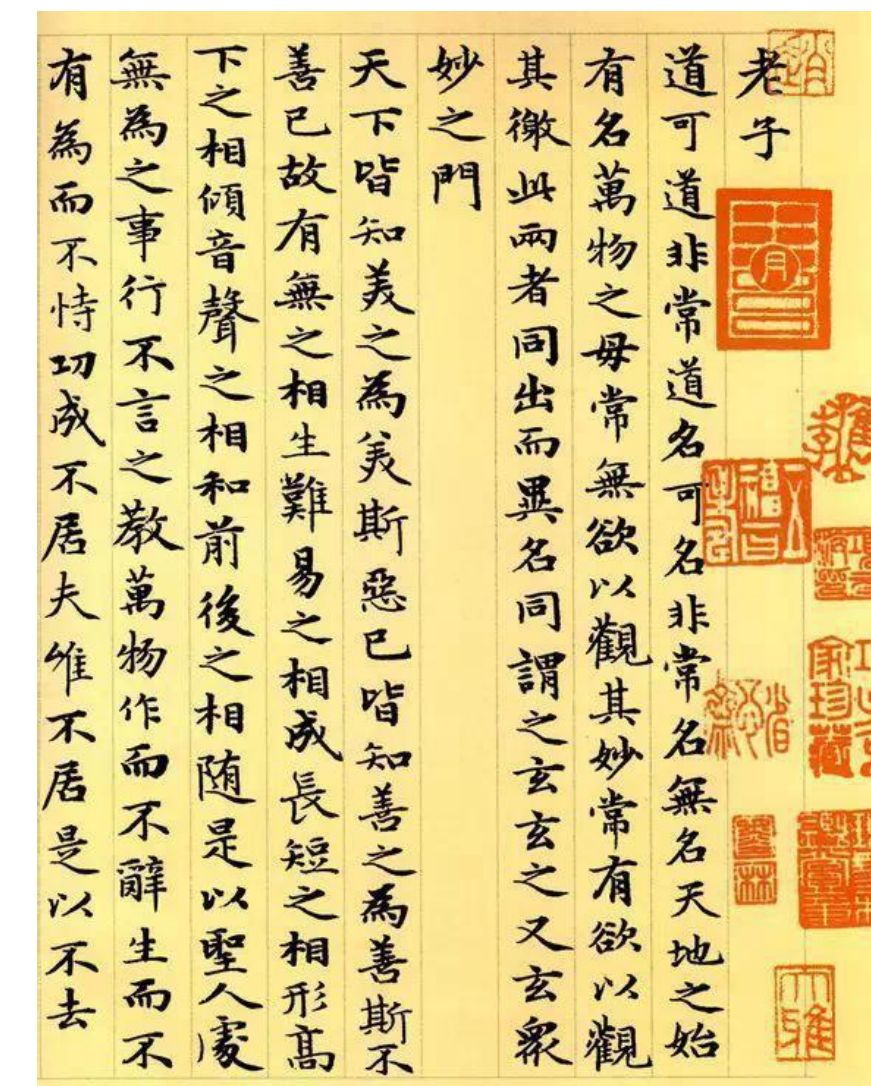 老子
道可道非常道名可名非常名無名天地之始
有名萬物之母常無欲以觀其妙常有欲以觀
其徼此兩者同出而異名同謂之玄玄之又玄衆
妙之門
天下皆知美之為美斯惡已皆知善之為善斯不
善已故有無之相生難易之相成長短之相形高
下之相傾音聲之相和前後之相随是以聖人處
無為之事行不言之教萬物作而不辭生而不
有為而不恃功成不居夫惟不居是以不去